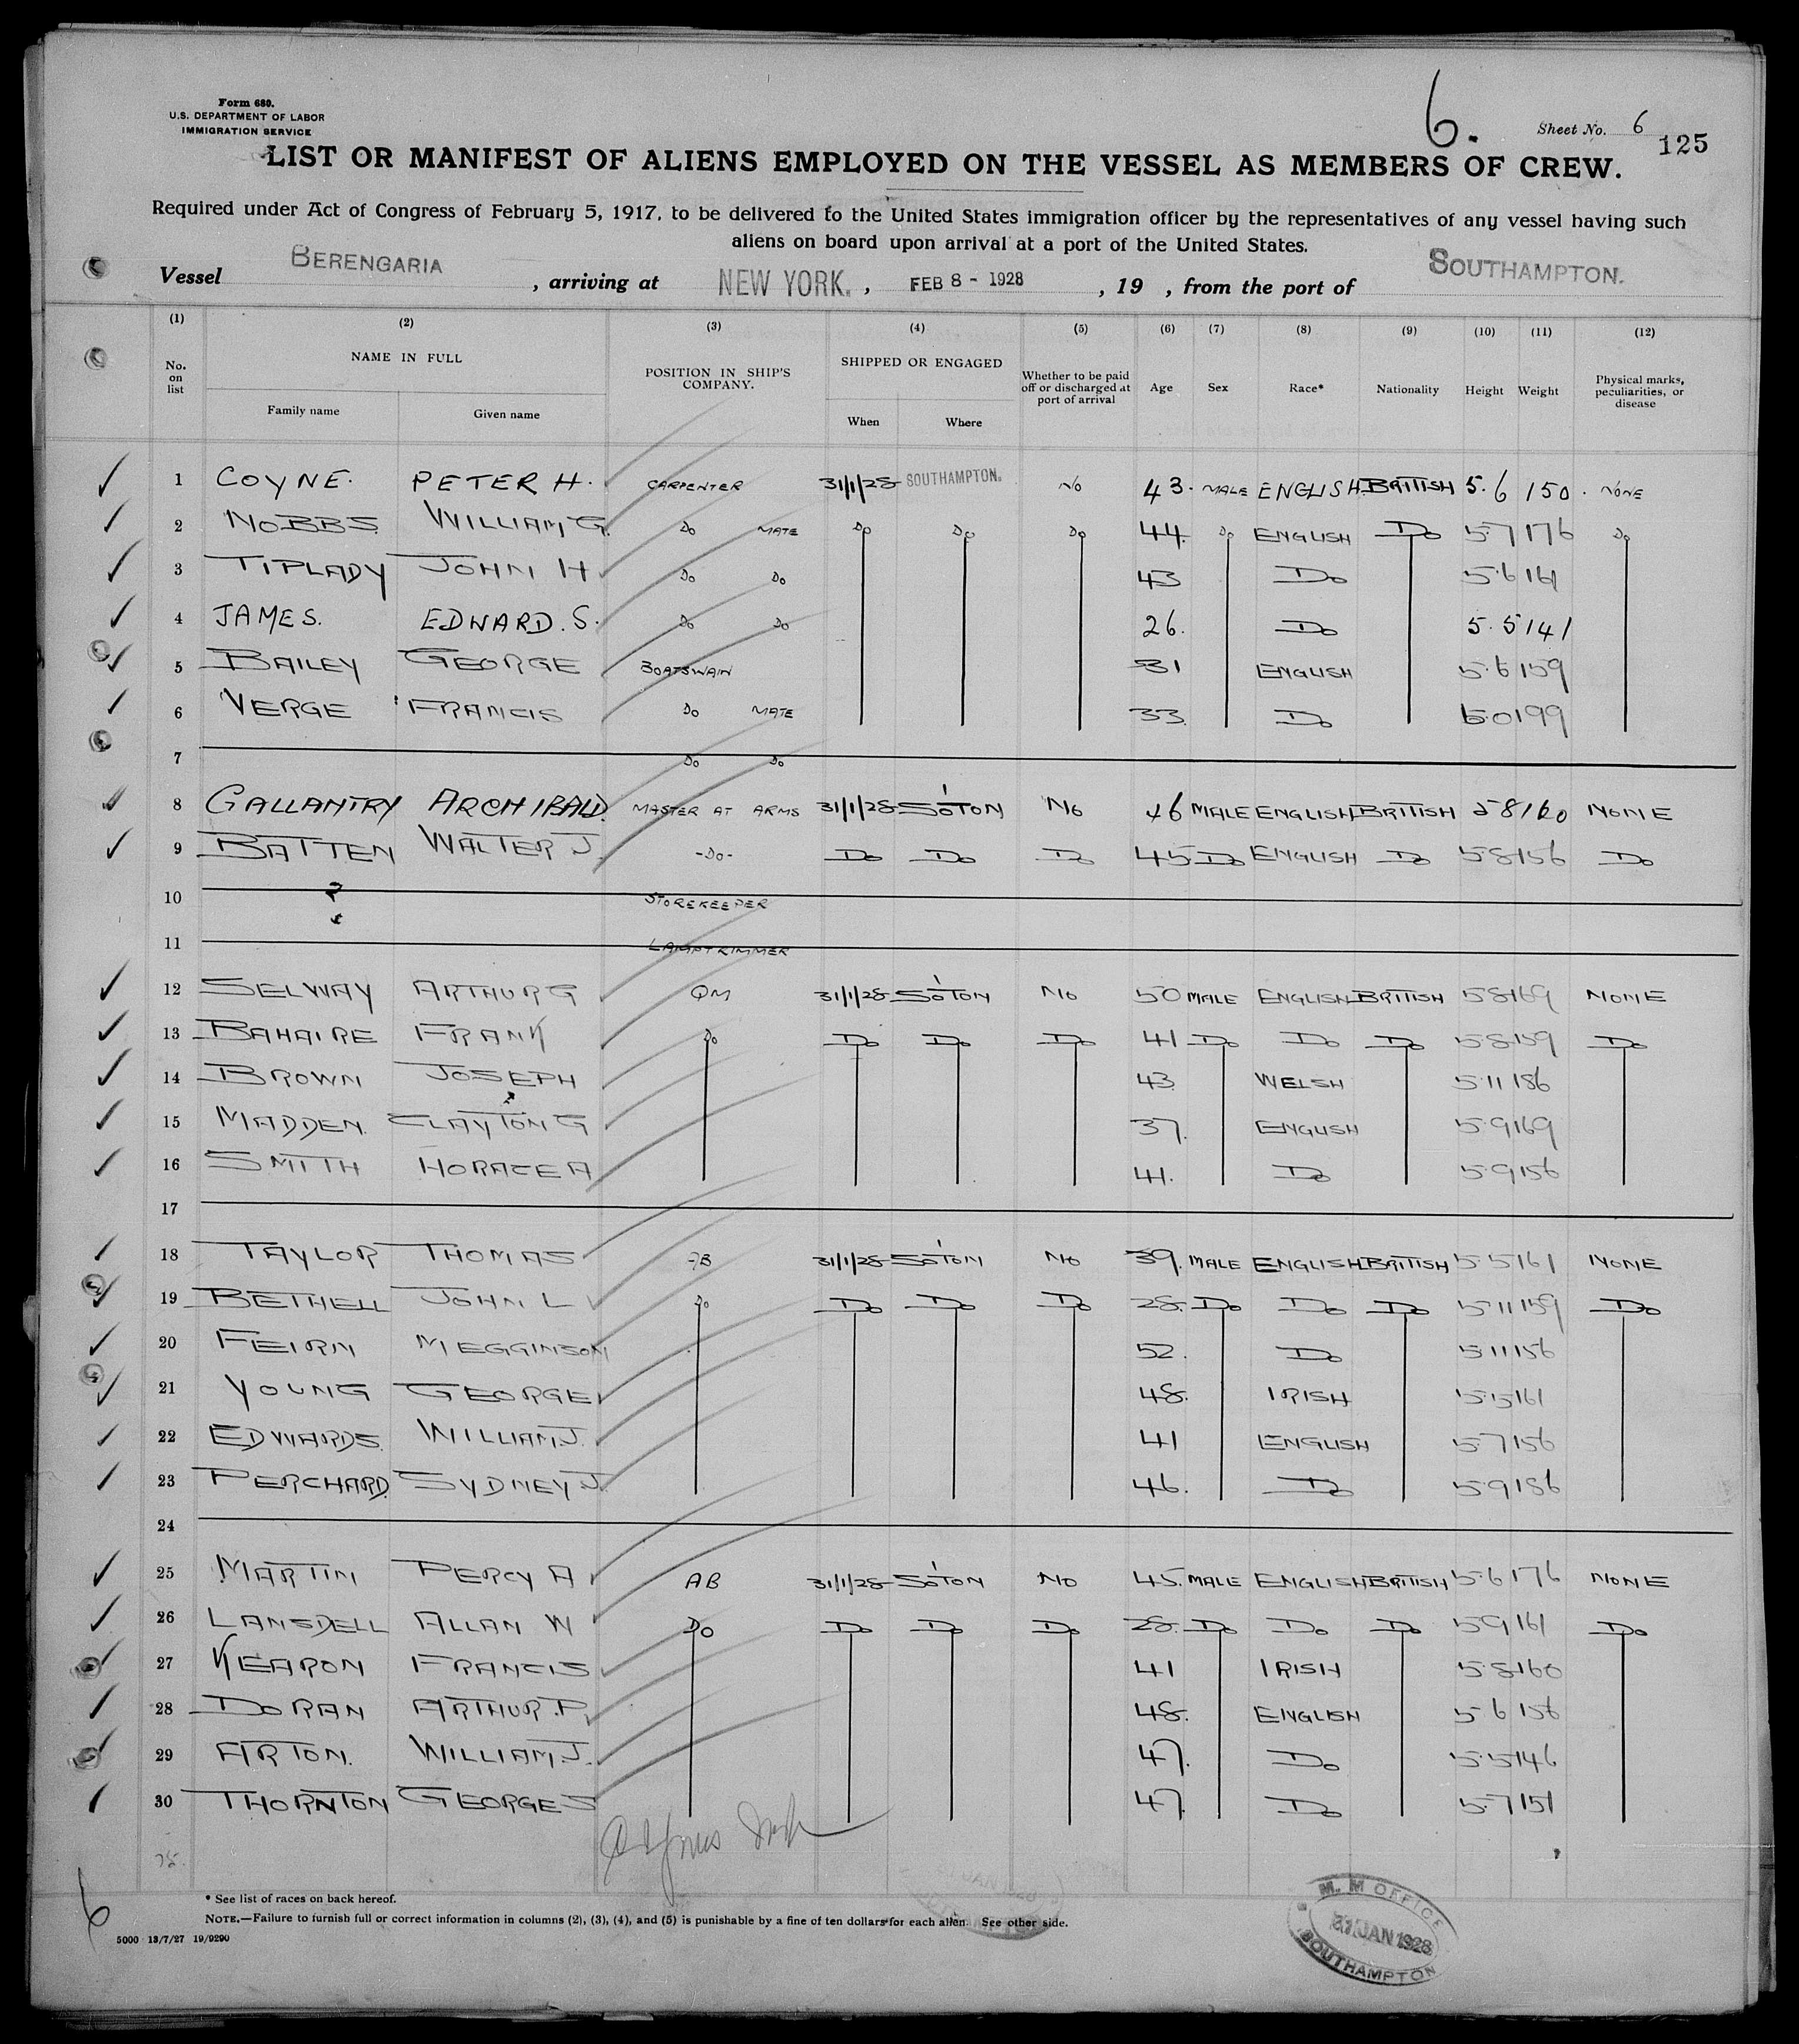 6.
Form 680.
U.S. DEPARTMENT OF LABOR
IMMIGRATION SERVICE
Sheet No. 6
125
LIST OR MANIFEST OF ALIENS EMPLOYED ON THE VESSEL AS MEMBERS OF CREW.
Required under Act of Congress of February 5, 1917, to be delivered to the United States immigration officer by the representatives of any vessel having such
aliens on board upon arrival at a port of the United States.
Vessel BERENGARIA, arriving at NEW YORK., FEB 8 - 1928, 19 , from the port of SOUTHAMPTON.
(1) (2) (3) (4) (5) (6) (7) (8) (9) (10) (11) (12)
No. on list NAME IN FULL POSITION IN SHIP'S COMPANY. SHIPPED OR ENGAGED Whether to be paid off or discharged at port of arrival Age Sex Race* Nationality Height Weight Physical marks, peculiarities, or disease
Family name Given name When Where
1 COYNE. PETER H. CARPENTER 31/1/28 SOUTHAMPTON. NO 43. MALE ENGLISH BRITISH 5.6 150. NONE
2 NOBBS. WILLIAM G. DO MATE DO DO DO 44. DO ENGLISH DO 5.7 176 DO
3 TIPLADY JOHN H DO DO 43 DO 5.6 161
4 JAMES. EDWARD. S. DO DO 26. DO 5.5 141
5 BAILEY GEORGE BOATSWAIN 31 ENGLISH 5.6 159
6 VERGE FRANCIS DO MATE 33. DO 6.0 199
7 DO DO
8 GALLANTRY ARCHIBALD. MASTER AT ARMS 31/1/28 SO'TON NO 46 MALE ENGLISH BRITISH 5 8 160 NONE
9 BATTEN WALTER J. -DO- DO DO DO 45 DO ENGLISH DO 5.8 156 DO
10 STOREKEEPER
11 LAMPTRIMMER
12 SELWAY ARTHUR G QM 31/1/28 SO'TON NO 50 MALE ENGLISH BRITISH 5.8 169 NONE
13 BAHAIRE FRANK DO DO DO DO 41 DO DO DO 5.8 159 DO
14 BROWN JOSEPH 43. WELSH 5.11 186
15 MADDEN. CLAYTON G 37. ENGLISH 5.9 169
16 SMITH HORACE A 41. DO 5.9 156
17
18 TAYLOR THOMAS AB 31/1/28 SO'TON NO 39. MALE ENGLISH BRITISH 5.5 161 NONE
19 BETHELL JOHN L DO DO DO DO 28. DO DO DO 5.11 159 DO
20 FEIRN MEGGINSON 52. DO 5.11 156
21 YOUNG GEORGE 48. IRISH 5.5 161
22 EDWARDS. WILLIAM. J. 41 ENGLISH 5.7 156
23 PERCHARD. SYDNEY J. 46. DO 5.9 186
24
25 MARTIN PERCY A AB 31/1/28 SO'TON NO 45. MALE ENGLISH BRITISH 5.6 176 NONE
26 LANSDELL ALLAN W DO DO DO DO 28. DO DO DO 5.9 161 DO
27 KEARON FRANCIS 41 IRISH 5.8 160
28 DORAN ARTHUR. P. 48. ENGLISH 5 6 156
29 AIRTON. WILLIAM. J. 47. DO 5.5 146
30 THORNTON GEORGE S 47 DO 5.7 151
* See list of races on back hereof.
NOTE.—Failure to furnish full or correct information in columns (2), (3), (4), and (5) is punishable by a fine of ten dollars for each alien. See other side.
5000 13/7/27 19/9290
6
M. M OFFICE
31 JAN 1928
SOUTHAMPTON